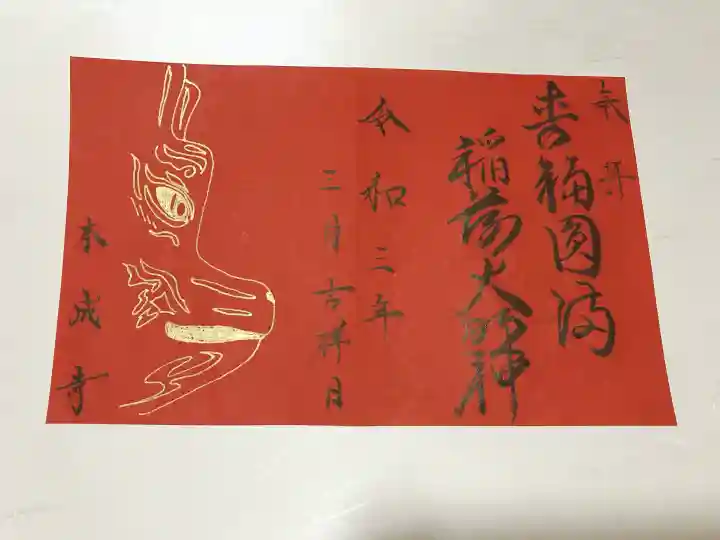 奉拝
福圓満
稲荷大明神
令和三年
三月吉祥日
本成寺